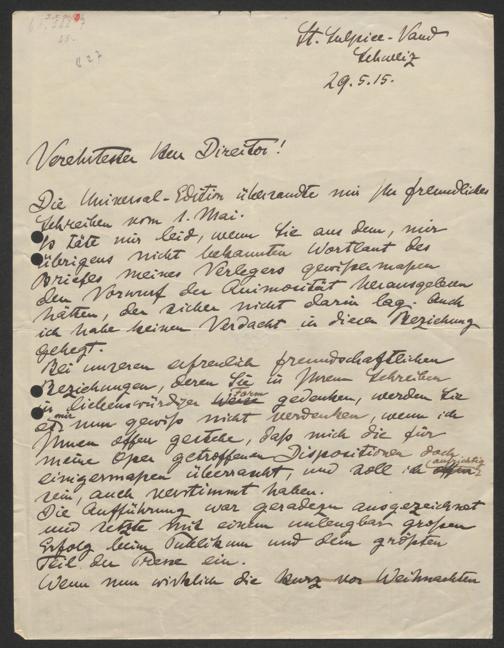 St. Sulpice-Vaud
Schweiz
29.5.15.
627
Verehrtester Herr Direktor!
Die Universal-Edition übersandte mir Ihr freundliches
Schreiben vom 1. Mai.
Es täte mir leid, wenn Sie aus dem, mir
übrigens nicht bekannten Wortlaut des
Briefes meines Verlegers gewißermaßen
den Vorwurf der Animosität herausgelesen
hätten, der sicher nicht darin lag. Auch
ich habe keinen Verdacht in dieser Beziehung
gehegt.
Bei unseren erfreulich freundschaftlichen
Beziehungen, deren Sie in Ihrem Schreiben
in liebenswürdiger Weise Form gedenken, werden Sie
es mir nun gewiß nicht verdenken, wenn ich
Ihnen offen gestehe, daß mich die für
meine Oper getroffenen Dispositionen doch
einigermaßen überrascht, und soll ich offen aufrichtig
sein, auch verstimmt haben.
Die Aufführung war geradezu ausgezeichnet
und setzte mit einem unleugbar großen
Erfolg beim Publikum und dem größten
Teil der Presse ein.
Wenn nun wirklich die kurz vor Weihnachten